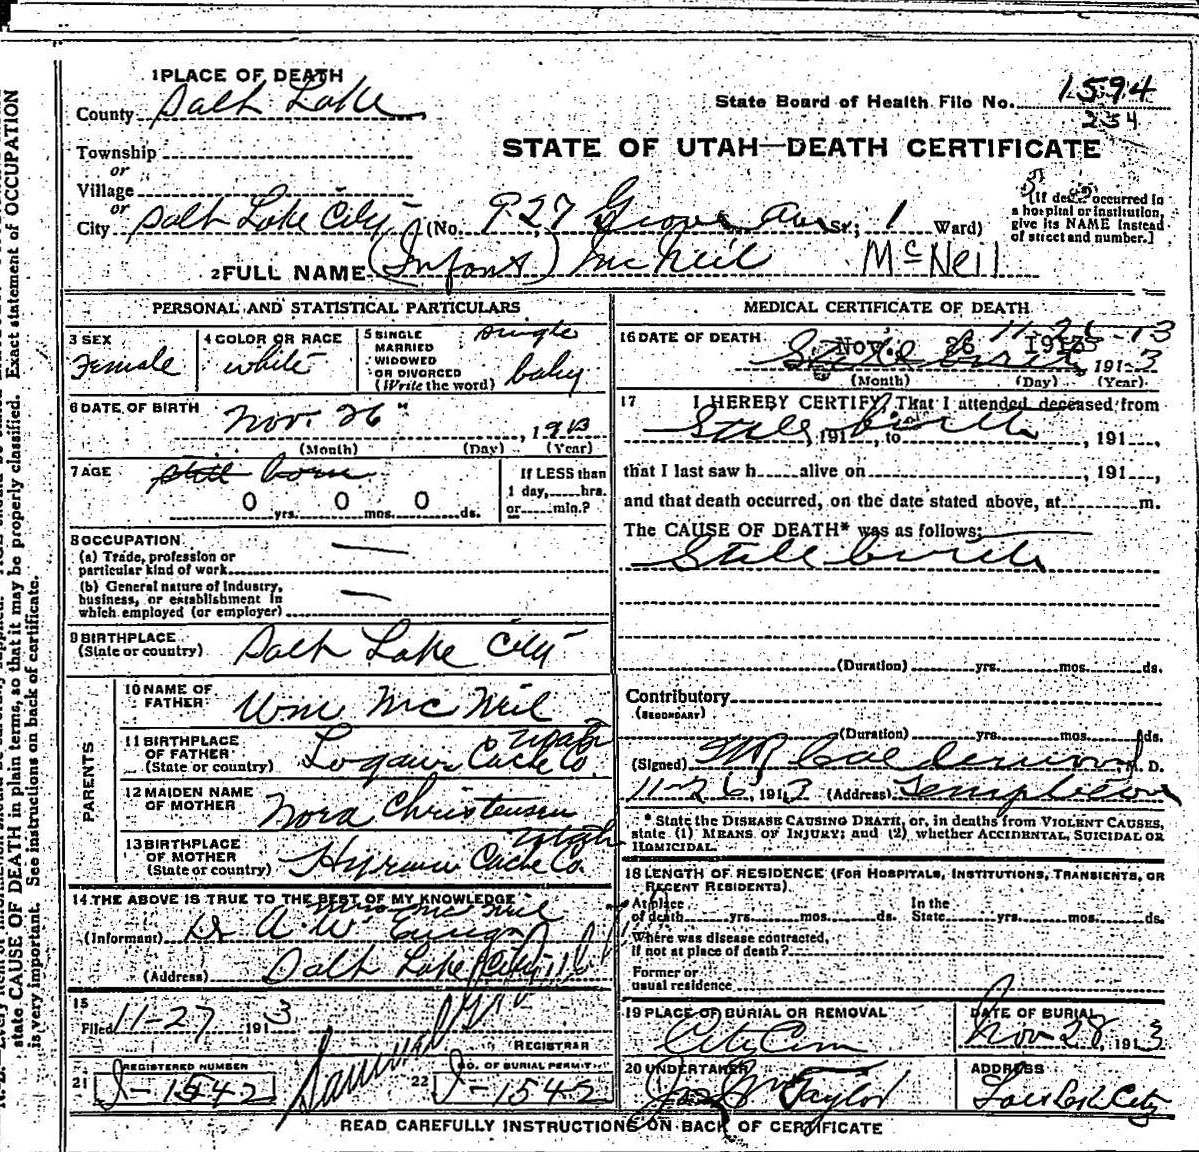 1 PLACE OF DEATH
County Salt Lake
State Board of Health File No. 1594
234
Township
or
STATE OF UTAH—DEATH CERTIFICATE
Village
or
City Salt Lake City (No. 927 Grove Ave St.; 1 Ward)
[If death occurred in
a hospital or institution,
give its NAME instead
of street and number.]
2 FULL NAME (Infant) McNeil McNeil
PERSONAL AND STATISTICAL PARTICULARS
3 SEX
Female
4 COLOR OR RACE
white
5 SINGLE
MARRIED
WIDOWED
OR DIVORCED
(Write the word)
single
baby
6 DATE OF BIRTH
Nov. 26", 1913
(Month) (Day) (Year)
7 AGE
still born
0 yrs. 0 mos. 0 ds.
If LESS than
1 day, hrs.
or min.?
8 OCCUPATION
(a) Trade, profession or
particular kind of work
(b) General nature of industry,
business, or establishment in
which employed (or employer)
9 BIRTHPLACE
(State or country) Salt Lake City
PARENTS
10 NAME OF
FATHER Wm McNeil
11 BIRTHPLACE
OF FATHER
(State or country) Logan Cache Co. Utah
12 MAIDEN NAME
OF MOTHER Nora Christensen
13 BIRTHPLACE
OF MOTHER
(State or country) Hyrum Cache Co. Utah
14 THE ABOVE IS TRUE TO THE BEST OF MY KNOWLEDGE
Mrs McNeil
(Informant) Dr A. W.
(Address) Salt Lake City
15
Filed 11-27 1913
REGISTRAR
REGISTERED NUMBER
21 S-1542
NO. OF BURIAL PERMIT
22 S-1542
MEDICAL CERTIFICATE OF DEATH
16 DATE OF DEATH
Nov. 26 1913
Still birth 191-3
(Month) (Day) (Year)
17 I HEREBY CERTIFY, That I attended deceased from
Still birth, 191 , to , 191 ,
that I last saw h alive on , 191 ,
and that death occurred, on the date stated above, at m.
The CAUSE OF DEATH* was as follows:
Still birth
(Duration) yrs. mos. ds.
Contributory
(SECONDARY)
(Duration) yrs. mos. ds.
(Signed) Calderwood M. D.
11-26, 1913 (Address) Templeton
* State the DISEASE CAUSING DEATH, or, in deaths from VIOLENT CAUSES,
state (1) MEANS OF INJURY; and (2) whether ACCIDENTAL, SUICIDAL OR
HOMICIDAL.
18 LENGTH OF RESIDENCE (FOR HOSPITALS, INSTITUTIONS, TRANSIENTS, OR
RECENT RESIDENTS)
At place
of death yrs. mos. ds.
In the
State yrs. mos. ds.
Where was disease contracted,
if not at place of death?
Former or
usual residence
19 PLACE OF BURIAL OR REMOVAL
City Cem
DATE OF BURIAL
Nov 28, 1913
20 UNDERTAKER
Jos Wm Taylor
ADDRESS
City
READ CAREFULLY INSTRUCTIONS ON BACK OF CERTIFICATE
state CAUSE OF DEATH in plain terms, so that it may be properly classified. Exact statement of OCCUPATION
is very important. See instructions on back of certificate.